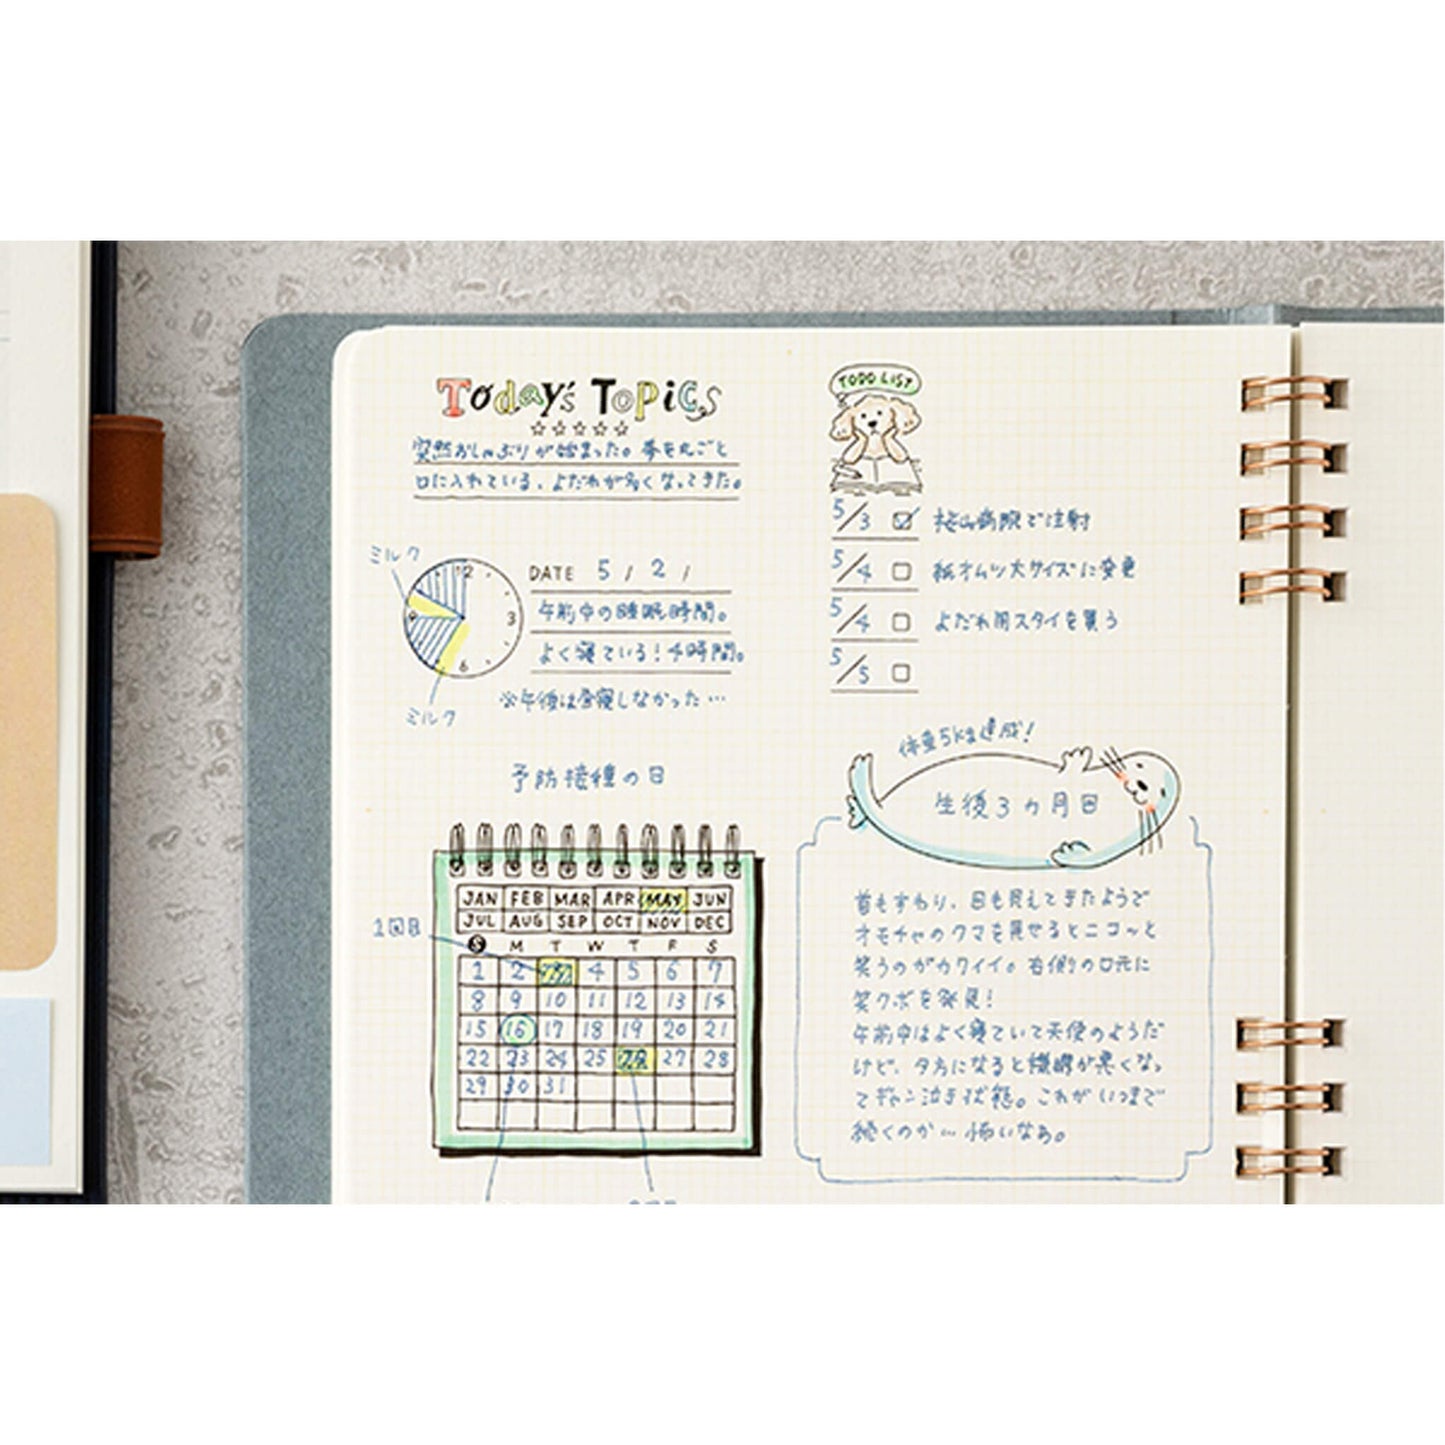 Today's Topics
突然おしゃぶりが始まった。拳を丸ごと
口に入れている、よだれが多くなってきた。
ミルク
12
3
6
9
ミルク
DATE 5 / 2 /
午前中の睡眠時間。
よく寝ている!4時間。
※午後は昼寝しなかった…
予防接種の日
1回目
JAN FEB MAR APR MAY JUN
JUL AUG SEP OCT NOV DEC
S M T W T F S
1 2 3 4 5 6 7
8 9 10 11 12 13 14
15 16 17 18 19 20 21
22 23 24 25 26 27 28
29 30 31
TODO LIST
5/3 桜山病院で注射
5/4 紙オムツ大サイズに変更
5/4 よだれ用スタイを買う
5/5
体重5kg達成!
生後3ヵ月目
首もすわり、目も見えてきたようで
オモチャのクマを見せるとニコーッと
笑うのがカワイイ。右側の口元に
笑クボを発見!
午前中はよく寝ていて天使のようだ
けど、夕方になると機嫌が悪くなっ
てギャン泣き状態。これがいつまで
続くのか…怖いなあ。